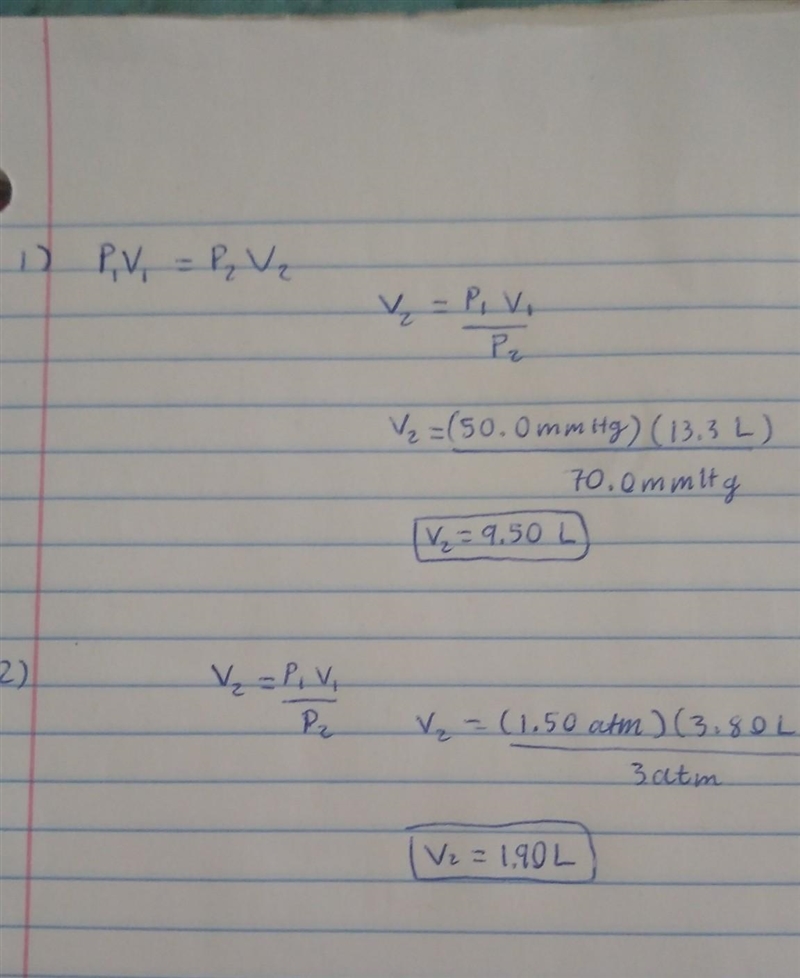 1) P₁V₁ = P₂V₂
V₂ = P₁ V₁
P₂
V₂ = (50.0 mmHg) (13.3 L)
70.0 mmHg
V₂ = 9.50 L
2) V₂ = P₁ V₁
P₂
V₂ = (1.50 atm) (3.80 L
3 atm
V₂ = 1.90 L